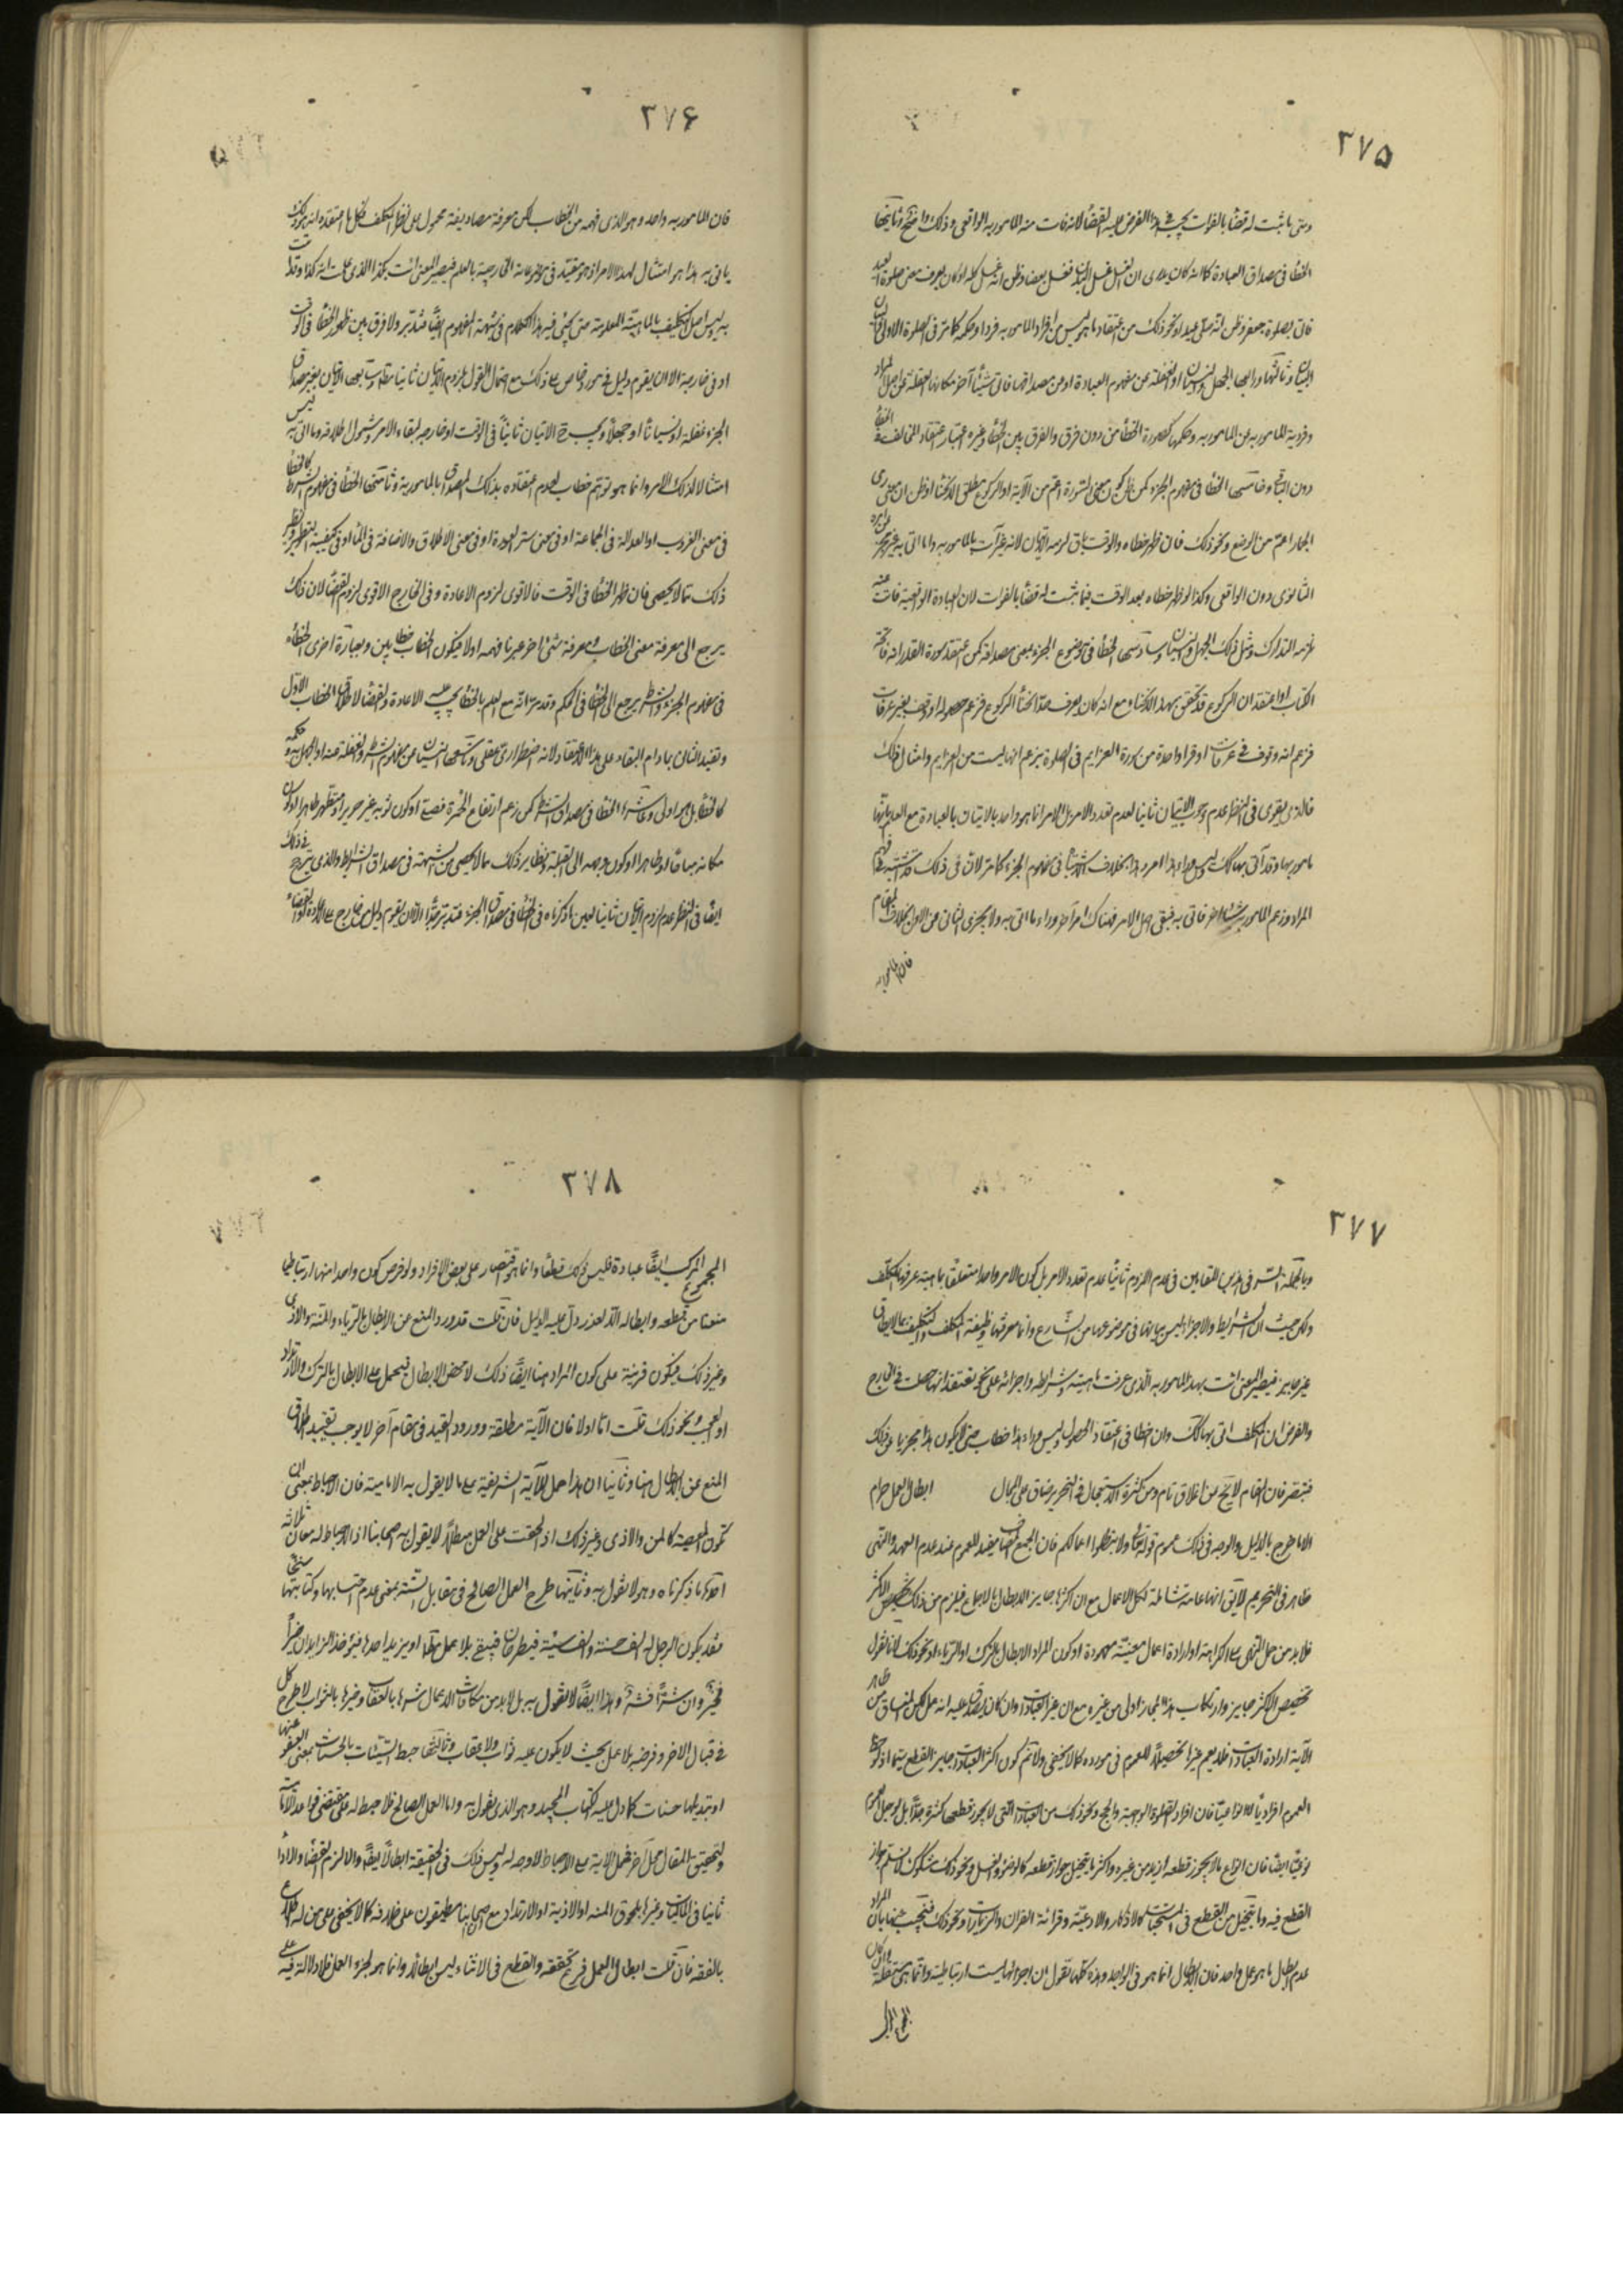 ٢٧٥
ومتى ما ثبت له قضاء بالفوات يجب في هذا الفرض عليه القضاء لانه فات منه المامور به الواقعى وذلك واضح وثانيها
الخطأ فى مصداق العبادة كما انه كان يدرى ان الغسل غسل البدن فغسل بعضا وظن انه غسل كله او كان يعرف معنى صلوة العيد
فاتى بصلوة جعفر وظن انه صلى عيد او نحو ذلك من اعتقاد ما هو ليس من افراد المامور به فردا وحكمه كما مر فى الصلوة الاولى
وثالثها ورابعها الجهل والنسيان او الغفلة عن مفهوم العبادة او من مصداقها فاتى شيئا آخر مكانها لغفلة عن اصل المراد
وفردية للمامور به عن المامور به وحكمها كصورة الخطأ من دون فرق والفرق بين الخطأ وغيره اعتبار اعتقاد المخالف فى الخطأ
دون الباقى وخامسها الخطأ فى مفهوم الجزء كمن ظن كون معنى السورة اعم من الآية او الركوع مطلق الانحناء او ظن ان معنى رمى
الجمار اعم من الوضع ونحو ذلك فان ظهر خطاه والوقت باق لزمه الاتيان لانه غير آت بالمامور به وانما اتى به بغير
الثانوى دون الواقعى وكذا لو ظهر خطاه بعد الوقت فيما ثبت له قضاء بالفوات لان العبادة الواقعية فات عنه
لزمه التدارك ومثل ذلك الجهل والنسيان وسادسها الخطأ فى موضوع الجزء بمعنى مصداقه كمن اعتقد سورة القدر انه فاتحة
الكتاب او اعتقد ان الركوع قد تحقق بهذا الانحناء مع انه كان يعرف حد انحناء الركوع فزعم حصوله او وقف بغير عرفات
فزعم انه وقوف فى عرفات او قرا واحدة من سورة العزايم فى الصلوة بزعم انها ليست من العزايم وامثال ذلك
فالذى يقوى فى النظر عدم وجوب الاتيان ثانيا لعدم تعدد الامر بل الامر انما هو واحد بالاتيان بالعبادة مع العلم بانها
مامور بها وقد أتى بها كذلك وليس وراء هذا امر وهذا بخلاف الاشتباه فى مفهوم الجزء كما مر لان فى ذلك قد اشتبه فى فهم
المراد وزعم المامور به شيئا اخر فاتى به فبقى اصل الامر فهناك امر آخر وراء ما اتى به ولا يجزى الثانى عن الاول بخلاف المقام
فان المامور به
٢٧۶
فان المامور به واحد وهو الذى فهمه من الخطاب لكن معرفة مصاديقه محمول على نظر المكلف فكل ما اعتقده انه هو ذلك
ياتى به هذا هو امتثال لهذا الامر اذ هو مقيد فى موضوعاته الخارجية بالعلم فيصير المعنى ائت بكذا الذى علمت انه كذا وقد اتيت
به وليس اصل التكليف بالماهية المعلومة حتى يجئ فيه هذا الكلام فى شبهة المفهوم ايضا فتدبر ولا فرق بين ظهور الخطأ فى الوقت
او فى خارجه الا ان يقوم دليل فى مورد خاص على ذلك مع احتمال القول بلزوم الاتيان ثانيا مطلقا وسابعها الاتيان بغير مصداق
الجزء غفلة او نسيانا او جهلا ويجب الاتيان ثانيا فى الوقت او خارجه لبقاء الامر وشمول اطلاقه وما اتى به ليس
امتثالا لذلك الامر وانما هو توهم خطاب لعدم اعتقاده بذلك المصداق بالمامورية وثامنها الخطأ فى مفهوم الشرط كالخطأ
فى معنى الغروب او العدالة فى الجماعة او فى معنى ستر العورة او فى معنى الاطلاق والاضافة فى الماء او فى كيفية التطهير ونظير
ذلك مما لا يحصى فان ظهر الخطأ فى الوقت فالاقوى لزوم الاعادة وفى الخارج الاقوى لزوم القضاء لان ذلك
يرجع الى معرفة معنى الخطاب ومعرفة شئ اخر غير ما فهمه اولا فيكون الخطاب خطابين وبعبارة اخرى الخطاء
فى مفهوم الجزء والشرط يرجع الى الخطأ فى الحكم وقد مر انه مع العلم بالخطأ يجب عليه الاعادة والقضاء لاطلاق الخطاب الاول
وتقييد الثانى بما دام البقاء على هذا الاعتقاد لانه اضطرارى عقلى وتاسعها النسيان عن مفهوم الشرط والغفلة عنه او الجهل به وحكمه
كالخطأ بل هو اولى وعاشرها الخطأ فى مصداق الشرط كمن زعم ارتفاع الحمرة فصلى او كون ثوبه غير حرير او متطهر طاهرا او كان
مكانه مباحا او طاهرا او كون وجهه الى القبلة ونظاير ذلك مما لا يحصى من الشبهة فى مصداق الشرايط والذى يترجح فى ذلك
ايضا فى النظر عدم لزوم الاتيان ثانيا لعين ما ذكرناه فى الخطأ فى مصداق الجزء فتدبر جدا الا ان يقوم دليل من خارج على الاعادة او القضاء
٢٧٧
وبالجملة السر فى هذين المقامين فى عدم اللزوم ثانيا عدم تعدد الامر بل كون الامر واحدا متعلقا بماهية عرفها المكلف
ولكن حيث ان الشرايط والاجزاء ليس بيانها فى موضوعها من الشارع وانما معرفتها وظيفة المكلف والتكليف بما لا يطاق
غير جايز فيصير المعنى ائت بهذا المامور به الذى عرفت ماهيته وشرايطه واجزائه على نحو تعتقد انها حصلت فى الخارج
والفرض ان المكلف اتى بها كذلك وان اخطا فى اعتقاد الحصول وليس وراء هذا خطاب حتى لا يكون هذا مجزيا عن ذلك
فتبصر فان المقام لا يخ عن اغلاق تام ومن كثرة الاستعجال فى التحرير ضاق على المجال ابطال العمل حرام
الا ما خرج بالدليل والوجه فى ذلك عموم قوله تعالى ولا تبطلوا اعمالكم فان الجمع المضاف مفيد للعموم عند عدم العهد والنهى
ظاهر فى التحريم لا يق انها عامة شاملة لكل الاعمال مع ان اكثرها جايز الابطال بالاجماع فيلزم من ذلك تخصيص الاكثر
فلا بد من حمل النهى على الكراهة او ارادة اعمال معينة معهودة او كون المراد الابطال بالشرك او الرياء او نحو ذلك لانا نقول
تخصيص الاكثر جايز وارتكاب هذا المجاز اولى من غيره مع ان غير العبادات وان كان يصدق عليه انه عمل لكن المنساق من ظاهر
الآية ارادة العبادات فلا يعم غيرها تخصيصا للعموم فى مورده كما لا يخفى ولا نم كون اكثر العبادات جايز القطع سيما اذا لوحظ
العموم افراديا لا انواعيا فان افراد الصلوة الواجبة والحج ونحو ذلك من العبادات التى لا يجوز قطعها كثيرة جدا بل لو جعل العموم
نوعيا ايضا فان انواع ما لا يجوز قطعه ازيد من غيره واكثر ما يتخيل جواز قطعه كالوضوء والغسل ونحو ذلك مشكوك لا نسلم جواز
القطع فيه وما يتخيل من القطع فى المستحبات كالاذكار والادعية وقرائة القران والزيارات ونحو ذلك فيجب عنها بان المراد
عدم ابطال ما هو عمل واحد فان الابطال انما هو فى الواحد وهذه كلها نقول ان اجزائها ليست ارتباطية وانما هى مستقلة وان كان
٢٧٨
المجموع المركب ايضا عبادة فليس ذلك قطعا وانما هو اقتصار على بعض الافراد ولو فرض كون واحد منها ارتباطيا
منعنا من قطعه وابطاله الا لعذر دل عليه الدليل فان قلت قد ورد المنع عن الابطال بالرياء والمنة والاذى
وغير ذلك فيكون قرينة على كون المراد هنا ايضا ذلك لا محض الابطال فيحمل على الابطال بالشرك والارتداد
او العجب ونحو ذلك قلت اما اولا فان الآية مطلقة وورود القيد فى مقام آخر لا يوجب تقييد اطلاق
المنع عن الابطال هنا وثانيا ان هذا حمل للآية الشريفة على ما لا يقول به الامامية فان الاحباط بمعنى ان
تكون المعصية كالمن والاذى وغير ذلك اذا لحقت على العمل مبطلا لا يقول به اصحابنا اذ الاحباط له معان ثلاثة
احدها ما ذكرناه وهو لا نقول به وثانيها طرح العمل الصالح فى مقابل السيئة بمعنى عدم احتسابها وكتابتها
فقد يكون الرجل له الف حسنة والف سيئة فيطرحان فيبقى بلا عمل مطلقا او يزيد احدها فيؤخذ الزايد ان خيرا
فخير وان شرا فشر وهذا ايضا لا نقول به بل لا بد من مكافات الاعمال شرها بالعقاب وخيرها بالثواب لا طرح كل
فى قبال الاخر وفرضه بلا عمل بحيث لا يكون عليه ثواب ولا عقاب وثالثها حبط السيئات بالحسنات بمعنى العفو عنها
او تبديلها حسنات كما دل عليه الكتاب المجيد وهو الذى نقول به واما العمل الصالح فلا حبط له على مقتضى قواعد الامامية
ولتحقيق المقال محل آخر فحمل الآية على الاحباط لا وجه له وليس ذلك فى الحقيقة ابطالا ايضا والا لزم القضاء والاداء
ثانيا فى الماليات وغيرها بلحوق المنه او الاذية او الارتداد مع ان اصحابنا مطبقون على خلافه كما لا يخفى على من له اطلاع
بالفقه فان قلت ابطال العمل فرع تحققه والقطع فى الاثناء ليس ابطالا له وانما هو لجزء العمل فلا دلالة فيه على